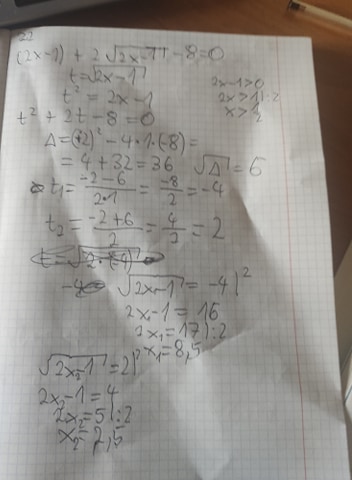 22
(2x-1) + 2√(2x-1) - 8 = 0
t = √(2x-1)
2x-1>0
t² = 2x-1
2x>1 |:2
x>1/2
t² + 2t - 8 = 0
Δ = (2)² - 4·1·(-8) =
= 4 + 32 = 36 √Δ = 6
t₁ = (-2-6)/(2·1) = -8/2 = -4
t₂ = (-2+6)/2 = 4/2 = 2
√(2x₁-1) = -4 |²
2x₁-1 = 16
2x₁ = 17 |:2
x₁ = 8,5
√(2x₂-1) = 2 |²
2x₂-1 = 4
2x₂ = 5 |:2
x₂ = 2,5